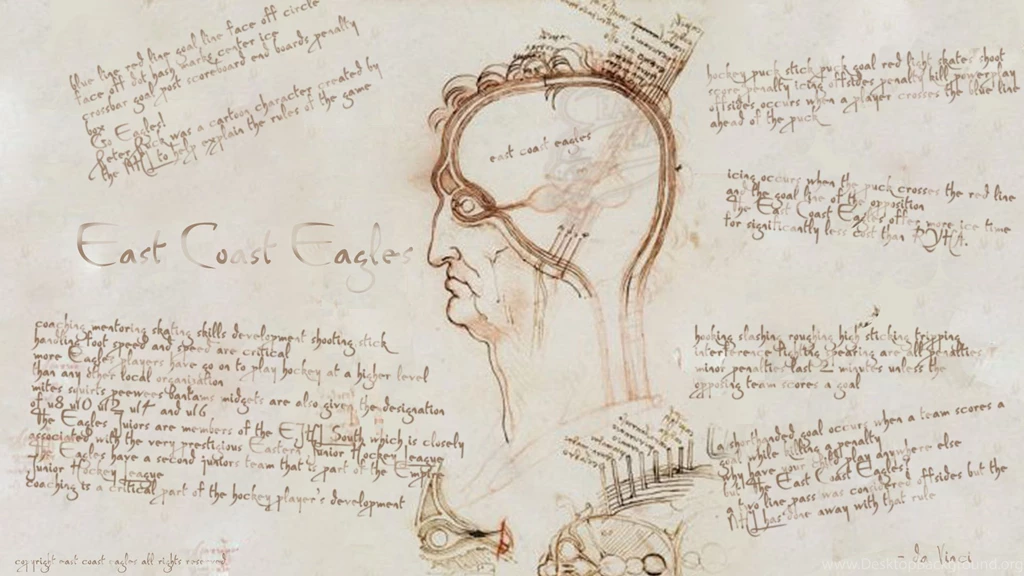 blue line red line goal line face off circle
face off dot hash marks center ice
crossbar goal post scoreboard end boards penalty
box
Go Eagles!
Peter Puck was a cartoon character created by
the NHL to help explain the rules of the game
East Coast Eagles
coaching mentoring skating skills development shooting stick
handling foot speed and speed are critical
more Eagles players have go on to play hockey at a higher level
than any other local organization
mites squirts peewees bantams midgets are also given the designation
of u8 u10 u12 u14 and u16
The Eagles Juiors are members of the EJHL South which is closely
associated with the very prestigious Eastern Junior Hockey League
The Eagles have a second juniors team that is part of the Empire
Junior Hockey League
coaching is a critical part of the hockey player's development
copyright east coast eagles all rights reserved
east coast eagles
hockey puck stick puck goal red light skates shoot
score penalty icing offsides penalty kill power play
offsides occurs when a player crosses the blue line
ahead of the puck
icing occurs when the puck crosses the red line
and the goal line of the opposition
The East Coast Eagles offer more ice time
for significantly less cost than RYHA.
hooking slashing roughing high sticking tripping
interference fighting spearing are all penalties
minor penalties last 2 minutes unless the
opposing team scores a goal
a shorthanded goal occurs when a team scores a
goal while killing a penalty
why have your kid play anywhere else
but the East Coast Eagles?
a two line pass was considered offsides but the
NHL has done away with that rule
- da Vinci
www.DesktopBackground.org